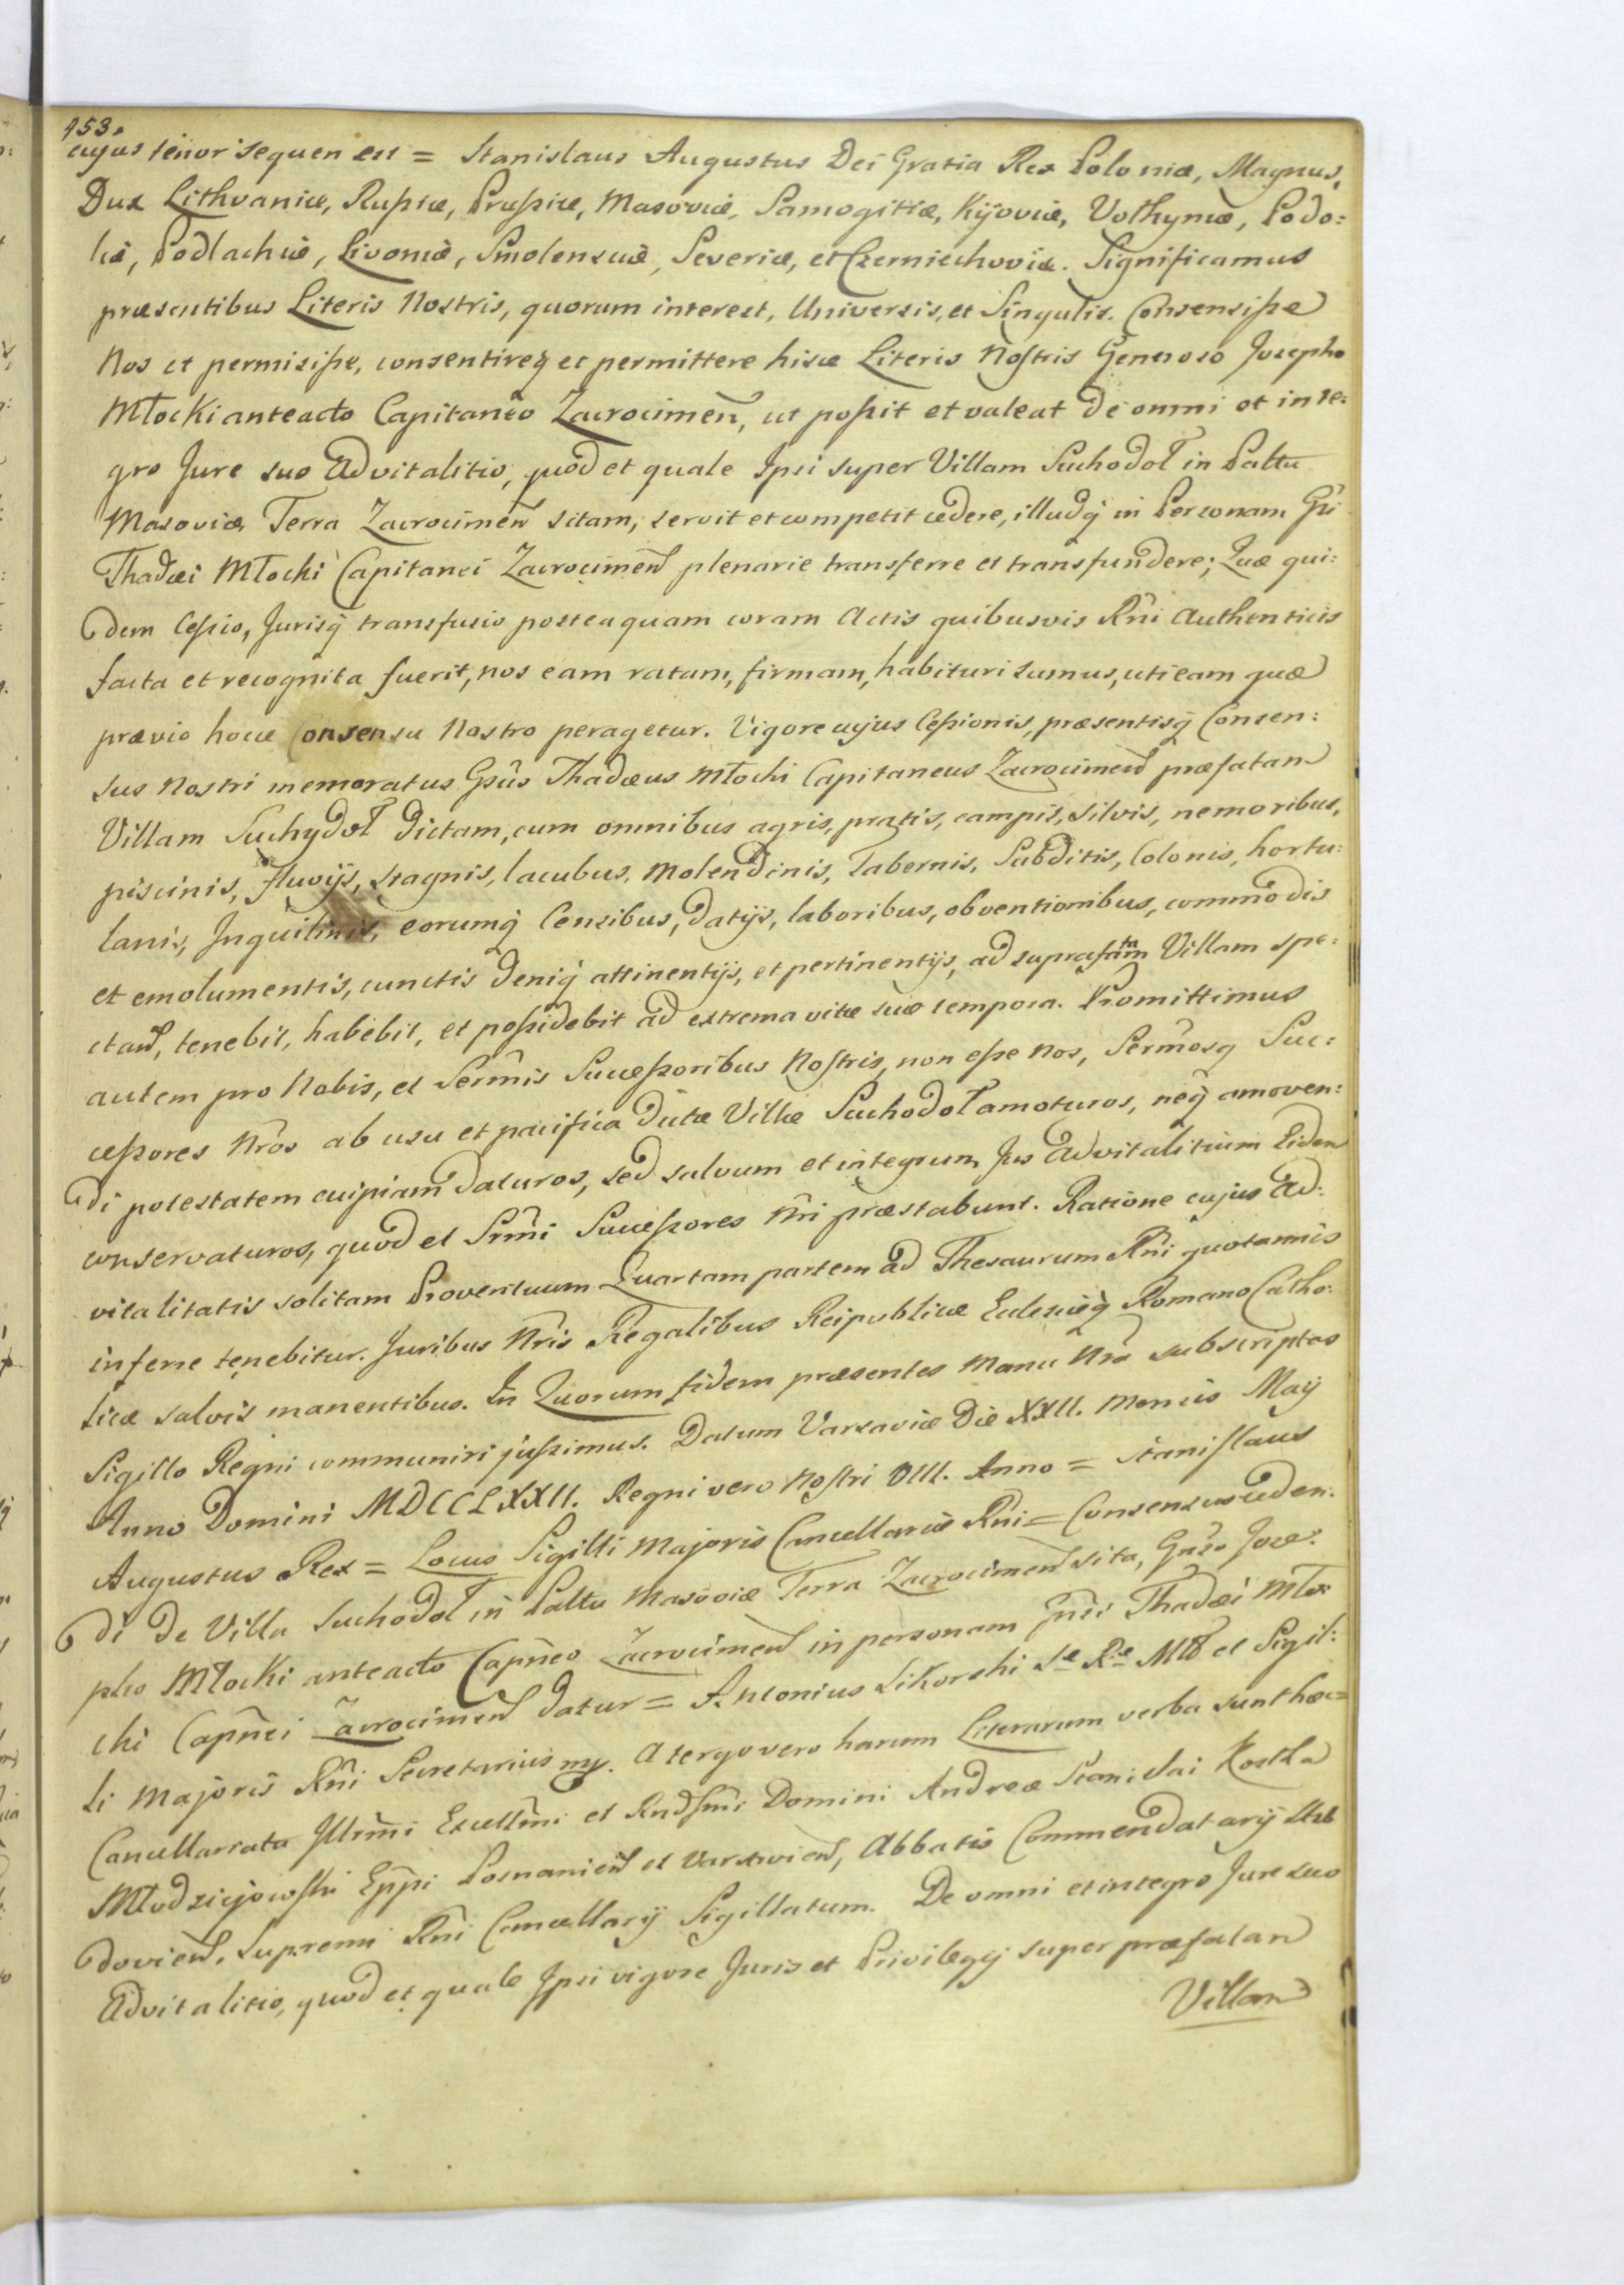 153.
cujus tenor sequen est = Stanislaus Augustus Dei Gratia Rex Poloniæ, Magnus,
Dux Lithvaniæ, Rußiæ, Prußiæ, Masoviæ, Samogitiæ, Kijoviæ, Volhyniæ, Podo:
liæ, Podlachiæ, Livoniæ, Smolensciæ, Severiæ, et Czerniechoviæ. Significamus
præsentibus Literis Nostris, quorum interest, Universis, et Singulis. Consensiße
Nos et permisiße, consentireq̃ et permittere hisce Literis Nostris Generoso Josepho
Młocki anteacto Capitaneo Zacrocimen̄, ut poßit et valeat de omni et inte:
gro Jure suo Advitalitio, quod et quale Ipsi super Villam Suchodoł in Pallu
Masoviæ, Terra Zacrocimen̄ sitam, servit et competit cedere, illudq̃ in Personam Gsi
Thadæi Młocki Capitanei Zacrocimen̄ plenarie transferre et transfundere; Quæ qui:
dem Ceßio, Jurisq̃ transfusio posteaquam coram Actis quibusvis Rñi Authenticis
facta et recognita fuerit, nos eam ratam, firmam, habituri sumus, uti eam quæ
prævio hocce Consensu Nostro peragetur. Vigore cujus Ceßionis, præsentisq̃ Consen:
sus Nostri memoratus Gsus Thadæus Młocki Capitaneus Zacrocimen̄ præfatam
Villam Suchydoł dictam, cum omnibus agris, pratis, campis, silvis, nemoribus,
piscinis, fluvijs, stagnis, lacubus, Molendinis, Tabernis, Subditis, Colonis, hortu:
lanis, Inquilinis, eorumq̃ Censibus, datijs, laboribus, obventionibus, commodis
et emolumentis, cunctis deniq̃ attinentijs, et pertinentijs, ad suprafatam Villam spe:
ctan̄, tenebit, habebit, et poßidebit ad extrema vitæ suæ tempora. Promittimus
autem pro Nobis, et Serm̃is Succeßoribus Nostris, non eße Nos, Serm̃osq̃ Suc:
ceßores Nr̃os ab usu et pacifica dictæ Villæ Suchodoł amoturos, neq̃ amoven:
di potestatem cuipiam daturos, sed salvum et integrum Jus Advitalitium Eidem
conservaturos, quod et Srm̃i Succeßores Nr̃i præstabunt. Ratione cujus Ad:
vitalitatis solitam Proventuum Quartam partem ad Thesaurum Rñi quotannis
inferre tenebitur. Juribus Nr̃is Regalibus Reipublicæ Ecclesiæq̃ Romano Catho:
licæ salvis manentibus. In Quorum fidem præsentes Manu Nr̃a subscriptas
Sigillo Regni communiri jußimus. Datum Varsaviæ Die XXII. Mensis Maij
Anno Domini MDCCLXXII. Regni vero Nostri VIII. Anno = Stanislaus
Augustus Rex = Locus Sigilli Majoris Cancellariæ Rñi = Consensus ceden:
di de Villa Suchodoł in Pallu Masoviæ Terra Zacrocimen̄ sita, Gñso Jose:
pho Młocki anteacto Capñeo Zacrocimen̄ in personam Gñsi Thadæi Mło:
cki Capñei Zacrocimen̄ datur = Antonius Sikorski Sæ Ræ Mttis et Sigil:
li Majoris Rñi Secretarius mp. A tergo vero harum Literarum verba sunt hæc =
Cancellariatu Illrm̃i Excellm̃i et Rndsm̃i Domini Andreæ Stanislai Kostka
Młodziejowski Epp̃i Posnanien̄ et Varsavien̄, Abbatis Commendatarij Heb
dovien̄, Supremi Rñi Cancellarij Sigillatum. De omni et integro Jure suo
Advitalitio, quod et quale Ipsi vigore Juris et Privilegij super præfatam
Villam